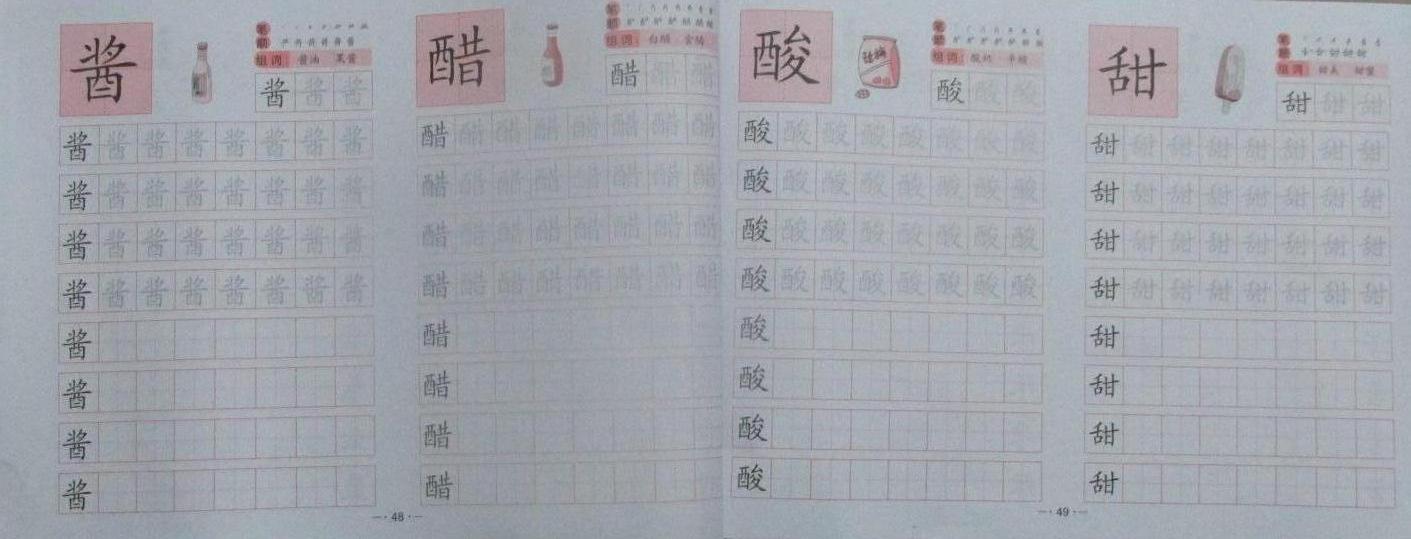 酱
笔顺
组词 酱油 果酱
酱 酱 酱
酱 酱 酱 酱 酱 酱 酱 酱
酱 酱 酱 酱 酱 酱 酱 酱
酱 酱 酱 酱 酱 酱 酱 酱
酱 酱 酱 酱 酱 酱 酱 酱
酱
酱
酱
酱
醋
笔顺
组词 白醋
醋 醋 醋
醋 醋 醋 醋 醋 醋 醋 醋
醋 醋 醋 醋 醋 醋 醋 醋
醋 醋 醋 醋 醋 醋 醋 醋
醋 醋 醋 醋 醋 醋 醋 醋
醋
醋
醋
醋
48
酸
笔顺
组词 酸奶
酸 酸 酸
酸 酸 酸 酸 酸 酸 酸 酸
酸 酸 酸 酸 酸 酸 酸 酸
酸 酸 酸 酸 酸 酸 酸 酸
酸 酸 酸 酸 酸 酸 酸 酸
酸
酸
酸
酸
甜
笔顺
组词 甜美 甜蜜
甜 甜 甜
甜 甜 甜 甜 甜 甜 甜 甜
甜 甜 甜 甜 甜 甜 甜 甜
甜 甜 甜 甜 甜 甜 甜 甜
甜 甜 甜 甜 甜 甜 甜 甜
甜
甜
甜
甜
49